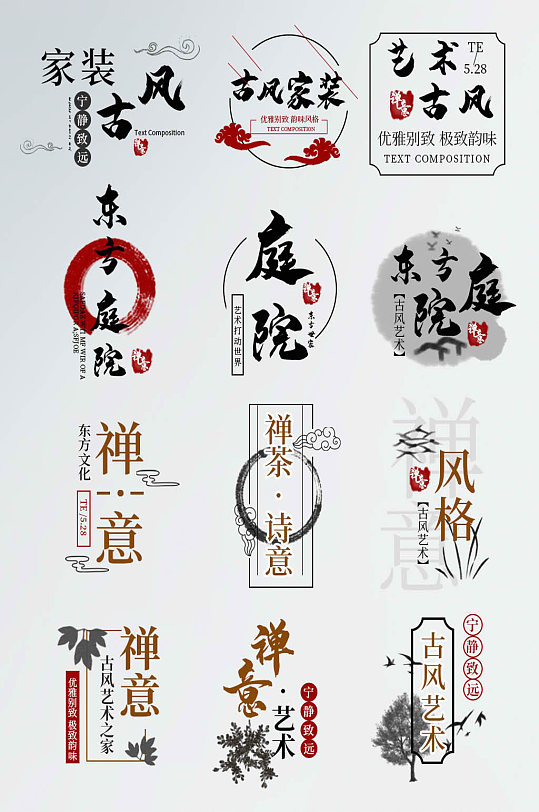 家装
古风
宁静致远
Text Composition
禅意
古风家装
优雅别致 韵味风格
TEXT COMPOSITION
艺术
TE
/
5.28
禅意
古风
优雅别致 极致韵味
TEXT COMPOSITION
东方庭院
禅意
庭院
禅意
艺术打动世界
东方世家
东方庭院
【古风艺术】
禅意
禅·意
东方文化
TE /5.28
禅茶·诗意
禅意
风格
禅意
【古风艺术】
禅意
古风艺术之家
优雅别致 极致韵味
禅意·艺术
宁静致远
古风艺术
宁静致远